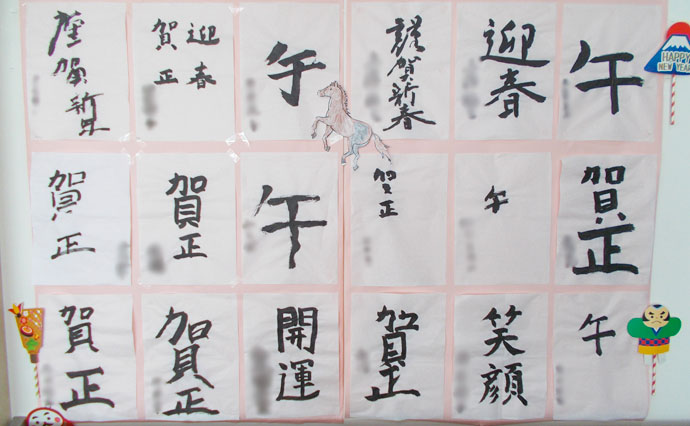 午
迎春
謹賀新春
午
迎春
賀正
謹賀新年
HAPPY
NEW YEAR
賀正
午
賀正
午
賀正
賀正
午
笑顔
賀正
開運
賀正
賀正